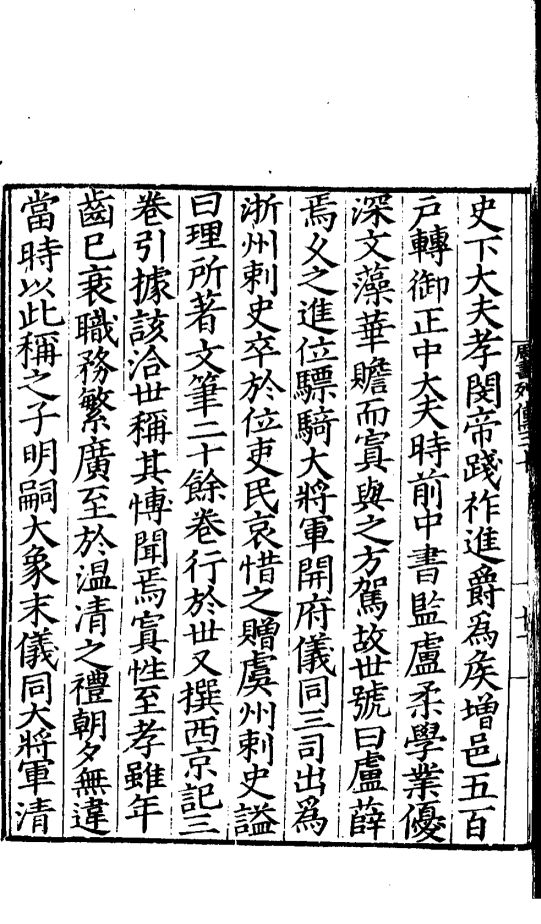 史下大夫孝閔帝踐祚進爵為矦增邑五百
戸轉御正中大夫時前中書監盧柔學業優
深文藻華贍而寘與之方駕故世號曰盧薛
焉久之進位驃騎大將軍開府儀同三司出爲
淅州刺史卒於位吏民哀惜之贈虞州刺史謚
曰理所著文筆二十餘卷行於世又撰西京記三
卷引據該洽世稱其博聞焉寘性至孝雖年
齒已衰職務繁廣至於温清之禮朝夕無違
當時以此稱之子明嗣大象末儀同大將軍清